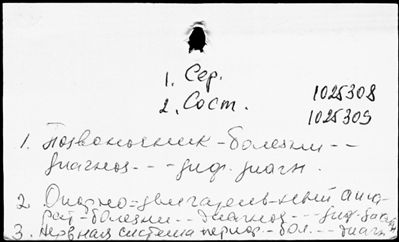 1. Сер.
2. Сост.
1025308
1025309
1. Позвоночник - болезни - -
диагноз - - - диф. диагн.
2. Опорно-двигательный аппа-
рат - болезни - - диагноз - - - диф. диагн.
3. Нервная система периф. - бол. - - диагн.